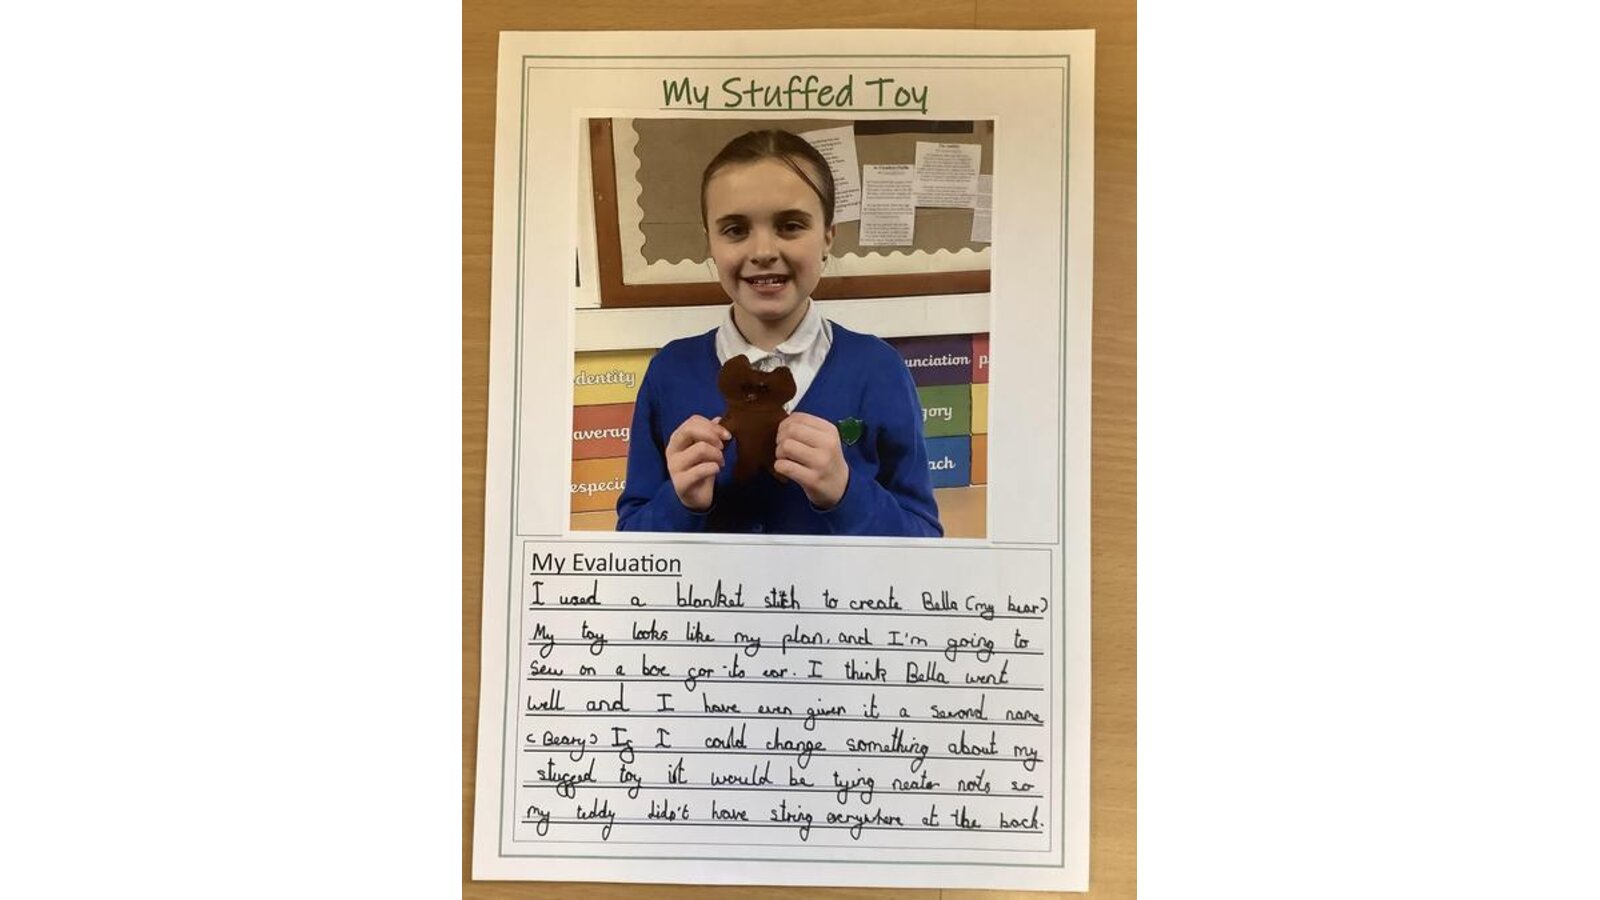 My Stuffed Toy
identity
averag
especia
unciation
p
gory
ach
My Evaluation
I used a blanket stitch to create Bella (my bear)
My toy looks like my plan, and I'm going to
sew on a boe for its ear. I think Bella went
well and I have even given it a second name
(Beary) If I could change something about my
stuffed toy it would be tying neater nots so
my teddy didn't have string everywhere at the back.